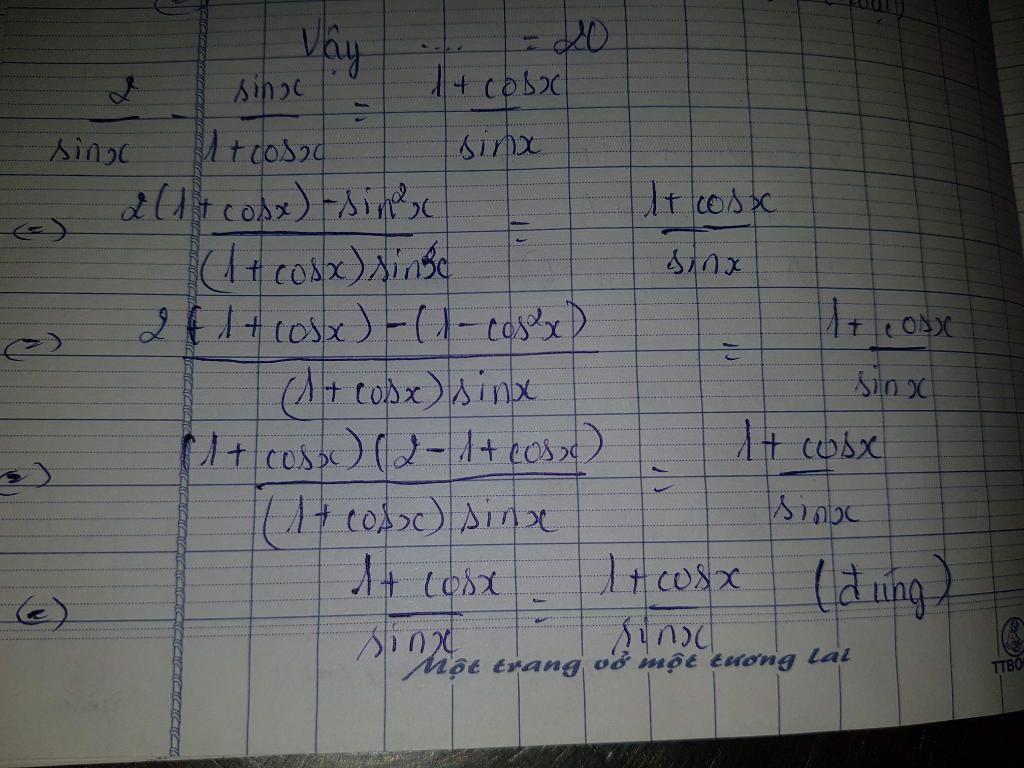 Vậy .... = 20
2/sinx - sinx/1+cosx = 1+cosx/sinx
(=) 2(1+cosx)-sin²x/(1+cosx)sinx = 1+cosx/sinx
(=) 2(1+cosx)-(1-cos²x)/(1+cosx)sinx = 1+cosx/sinx
(=) (1+cosx)(2-1+cosx)/(1+cosx)sinx = 1+cosx/sinx
(=) 1+cosx/sinx = 1+cosx/sinx (đúng)
Một trang vở một tương lai